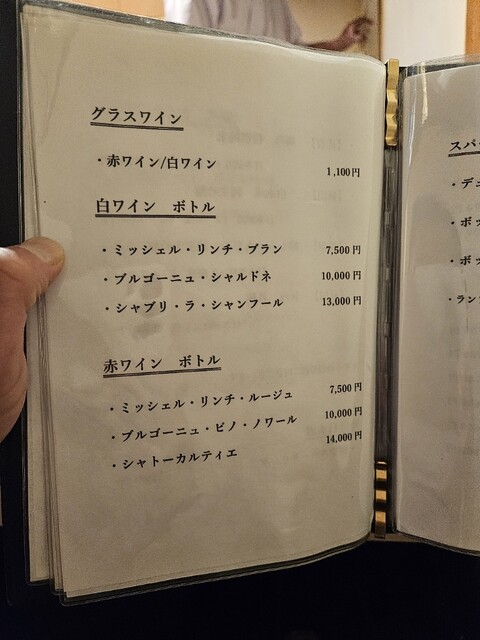 グラスワイン
・赤ワイン/白ワイン 1,100円
白ワイン ボトル
・ミッシェル・リンチ・ブラン 7,500円
・ブルゴーニュ・シャルドネ 10,000円
・シャブリ・ラ・シャンフール 13,000円
赤ワイン ボトル
・ミッシェル・リンチ・ルージュ 7,500円
・ブルゴーニュ・ピノ・ノワール 10,000円
・シャトーカルティエ 14,000円
スパ
・デ
・ボッ
・ボッ
・ラン